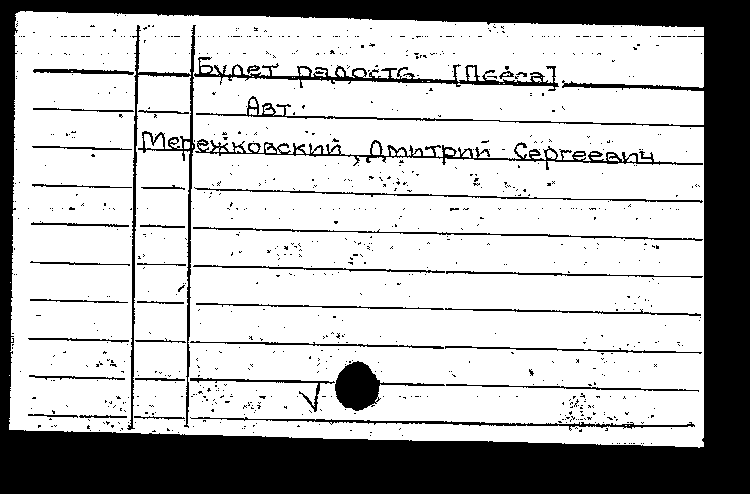 Будет радость [Пьеса].
Авт.:
Мережковский, Дмитрий Сергеевич